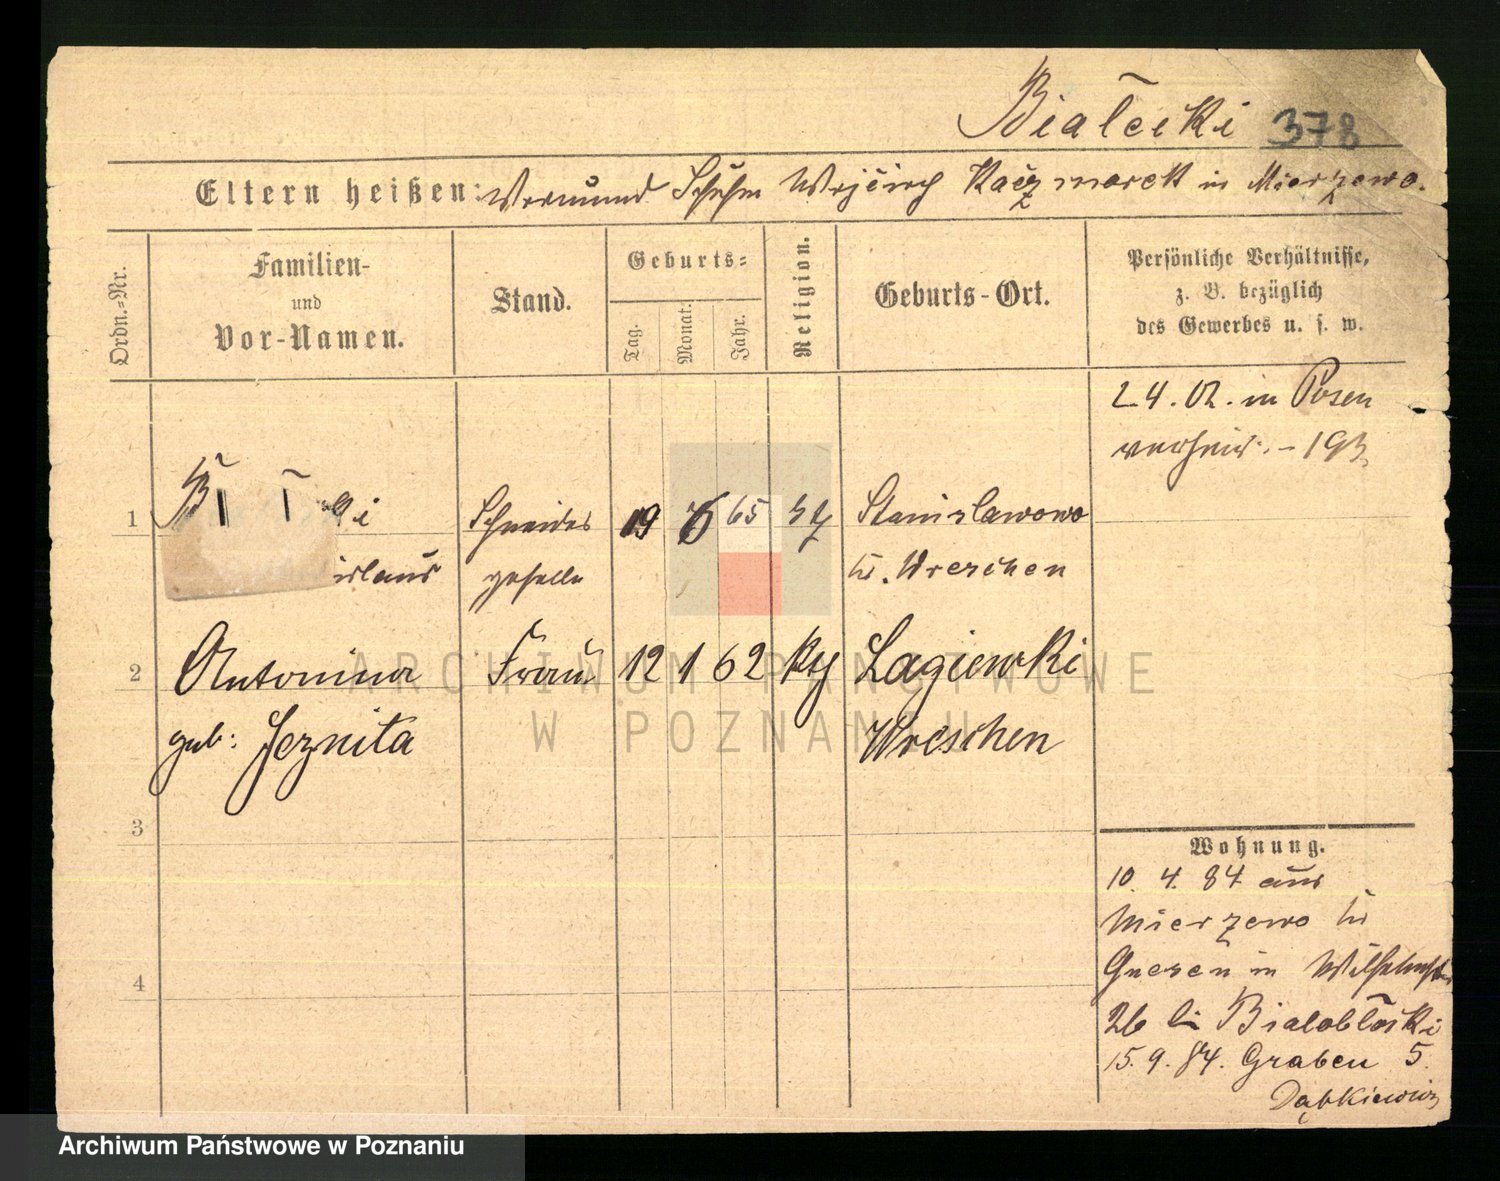 Białecki 378
Eltern heißen: Vormund Wojciech Kaczmarek in Mierzewo.
Ordn.=Nr.
Familien-
und
Vor-Namen.
Stand.
Geburts=
Tag.
Monat.
Jahr.
Religion.
Geburts-Ort.
Persönliche Verhältnisse,
z. B. bezüglich
des Gewerbes u. s. w.
24.02. in Posen
verheir. - 193
1 ki Schneider 19 6 65 Stanislawowo
islaus geselle Kr. Wreschen
2 Antonina Frau 12 1 62 kth Lagiewki
geb: Jeznita Wreschen
3
4
Wohnung.
10. 4. 84. aus
Mierzewo Kr
Gnesen in Wilhelmstr
26 bei Bialobłocki
15. 9. 84. Graben 5.
Dąbkiewicz
ARCHIWUM PAŃSTWOWE
W POZNANIU
Archiwum Państwowe w Poznaniu